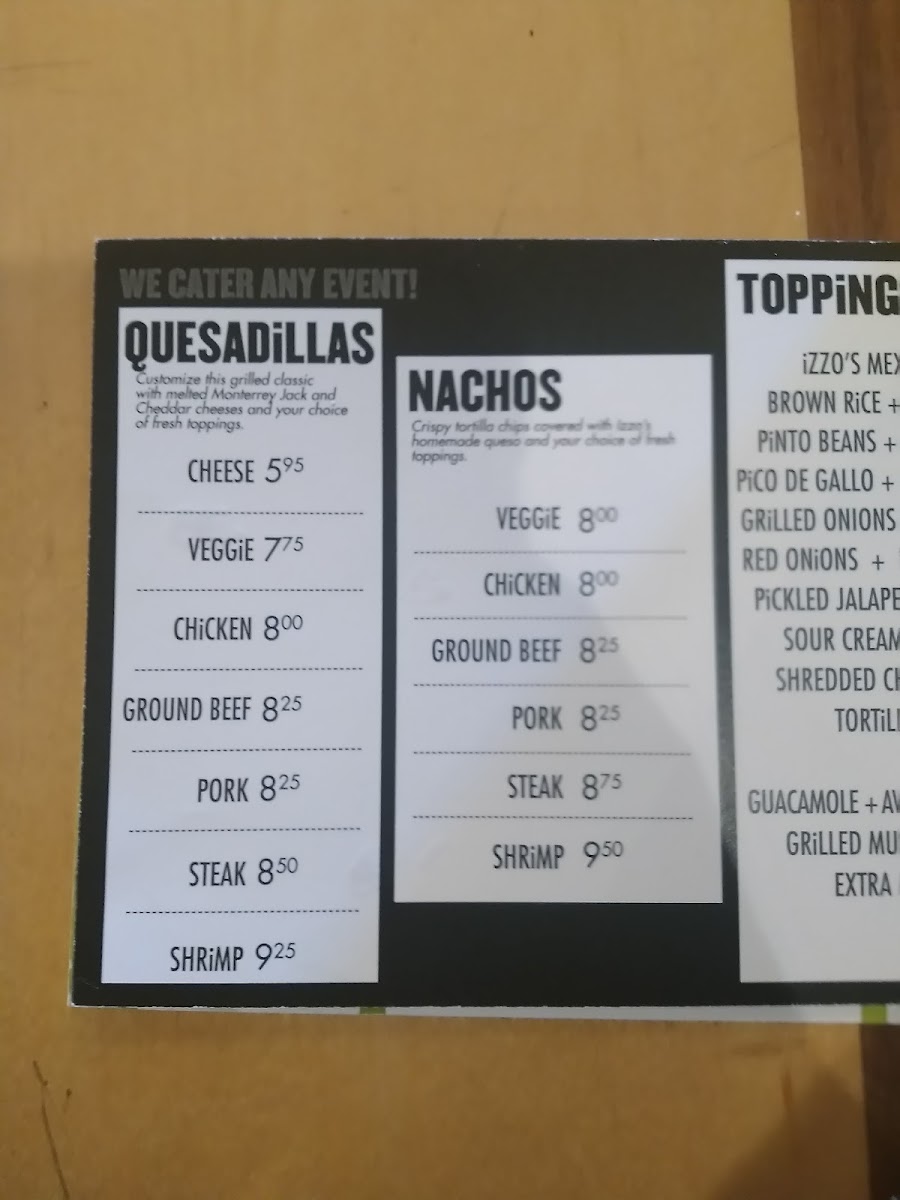 WE CATER ANY EVENT!
QUESADiLLAS
Customize this grilled classic
with melted Monterrey Jack and
Cheddar cheeses and your choice
of fresh toppings.
CHEESE 5⁹⁵
VEGGiE 7⁷⁵
CHiCKEN 8⁰⁰
GROUND BEEF 8²⁵
PORK 8²⁵
STEAK 8⁵⁰
SHRiMP 9²⁵
NACHOS
Crispy tortilla chips covered with Izzo's
homemade queso and your choice of fresh
toppings.
VEGGiE 8⁰⁰
CHiCKEN 8⁰⁰
GROUND BEEF 8²⁵
PORK 8²⁵
STEAK 8⁷⁵
SHRiMP 9⁵⁰
TOPPiNG
iZZO'S MEX
BROWN RiCE +
PiNTO BEANS +
PiCO DE GALLO +
GRiLLED ONIONS
RED ONiONS +
PiCKLED JALAPE
SOUR CREAM
SHREDDED CH
TORTiLL
GUACAMOLE + AV
GRiLLED MUS
EXTRA